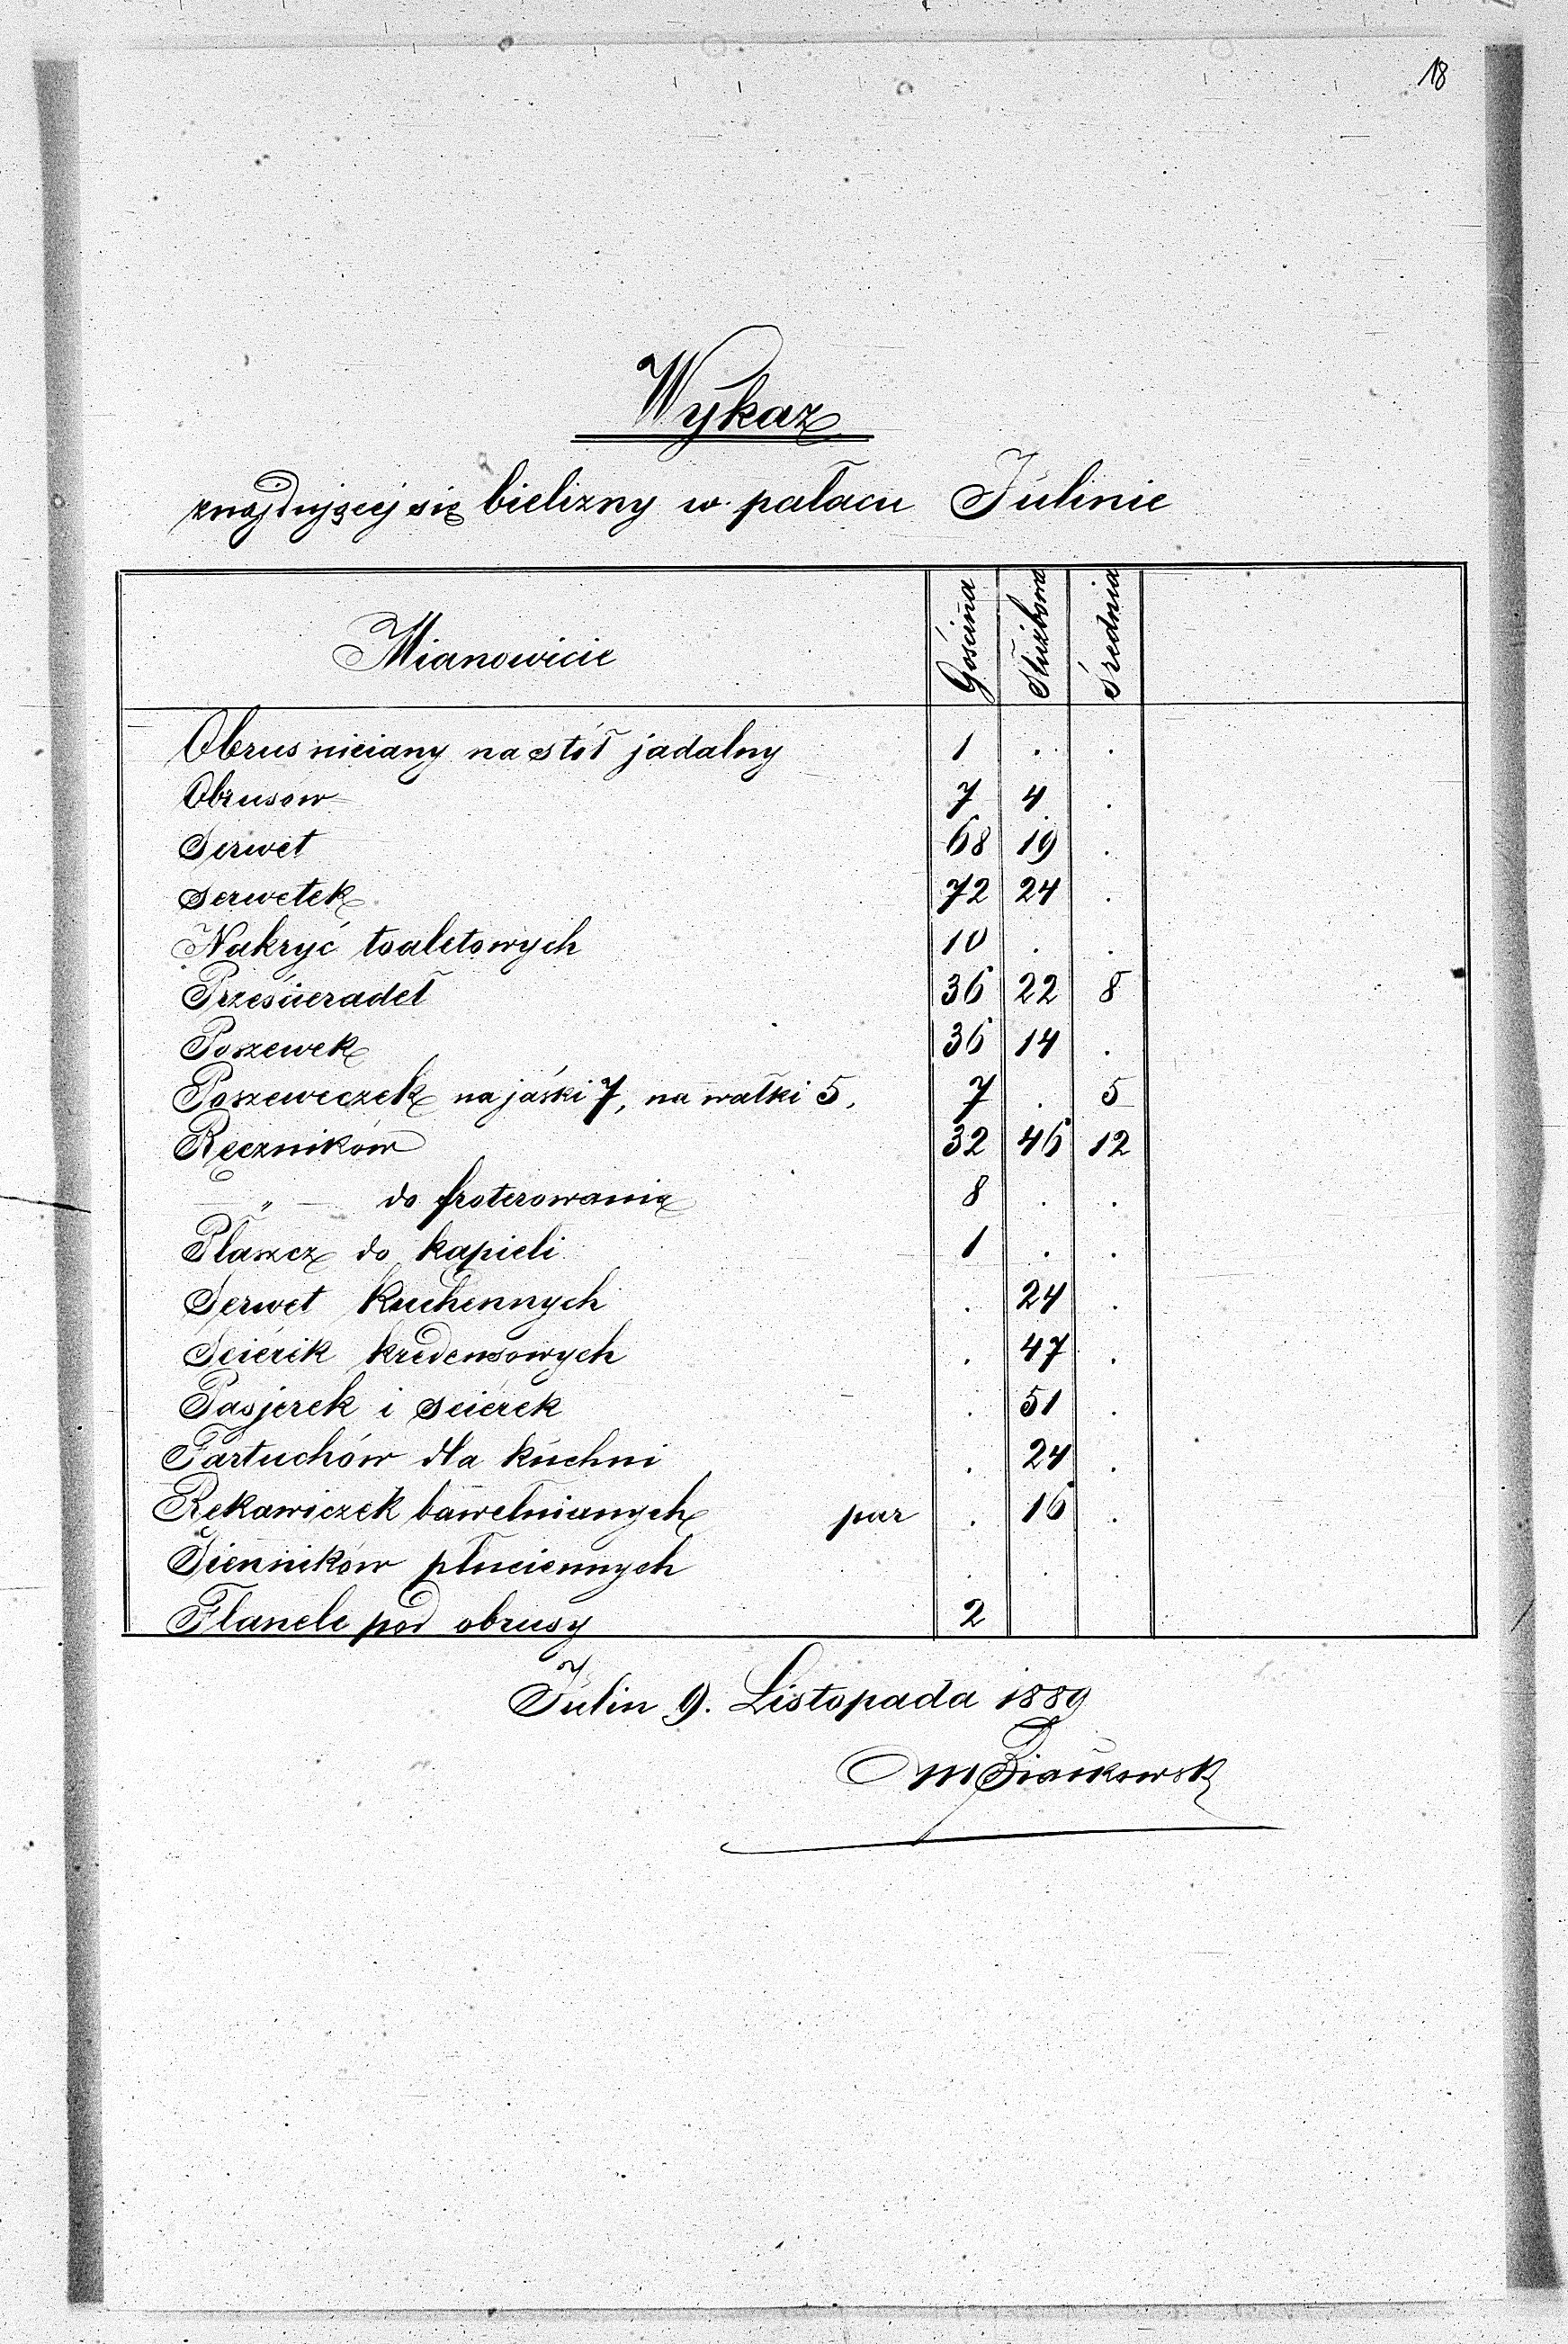 18
Wykaz
znajdującej się bielizny w pałacu Julinie
Mianowicie Gościnna Służbowa Średnia
Obrus niciany na stół jadalny 1 . .
Obrusów 7 4 .
Serwet 68 19 .
Serwetek 72 24 .
Nakryć toaletowych 10 . .
Prześcieradeł 36 22 8
Poszewek 36 14 .
Poszeweczek na jaśki 7, na wałki 5, 7 . 5
Ręczników 32 46 12
— " — do froterowania 8 . .
Płaszcz do kąpieli 1 . .
Serwet kuchennych . 24 .
Ścierek kredensowych . 47 .
Pasjerek i ścierek . 51 .
Fartuchów dla kuchni . 24 .
Rękawiczek bawełnianych par . 16 .
Sienników płuciennych . . .
Flanele pod obrusy 2
Julin 9. Listopada 1889